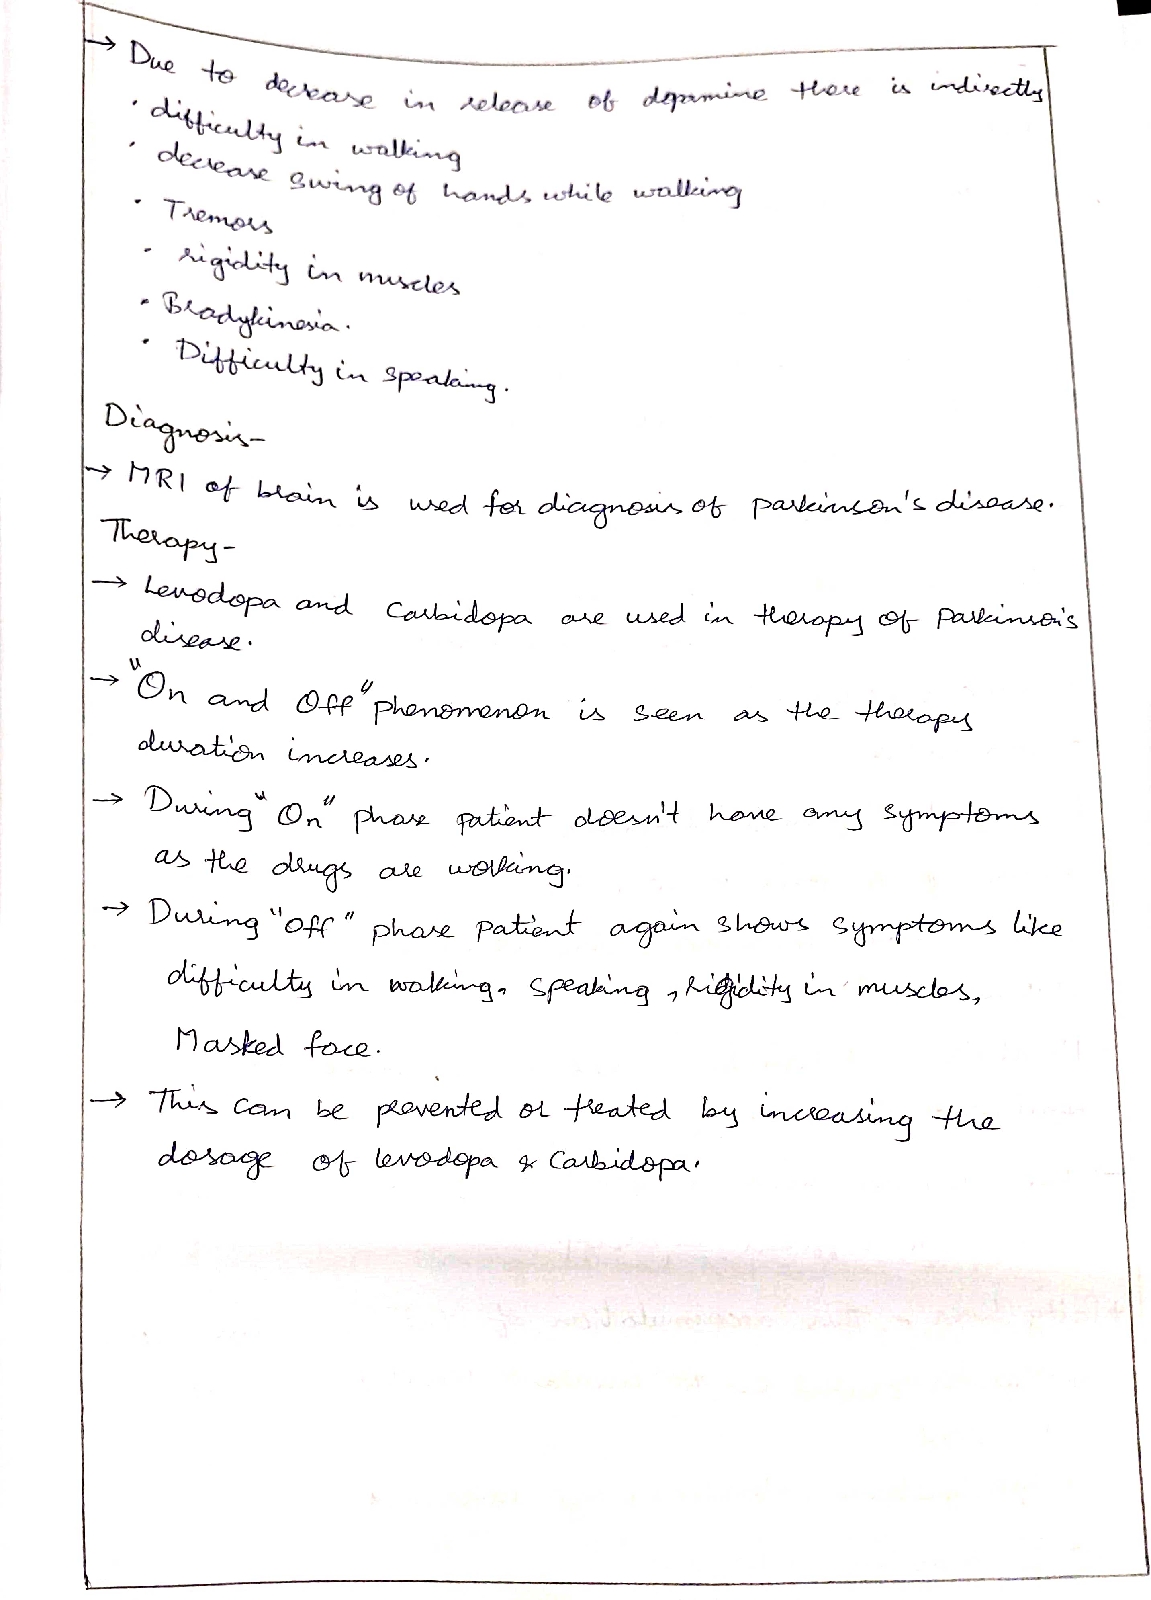 → Due to decrease in release of dopamine there is indirectly
· difficulty in walking
· decrease swing of hands while walking
· Tremors
· rigidity in muscles
· Bradykinesia.
· Difficulty in speaking.
Diagnosis-
→ MRI of brain is used for diagnosis of parkinson's disease.
Therapy-
→ Levodopa and Carbidopa are used in therapy of Parkinson's
disease.
→ "On and Off" phenomenon is seen as the therapy
duration increases.
→ During "On" phase patient doesn't have any symptoms
as the drugs are working.
→ During "Off" phase patient again shows symptoms like
difficulty in walking, speaking, rigidity in muscles,
Masked face.
→ This can be prevented or treated by increasing the
dosage of levodopa & Carbidopa.